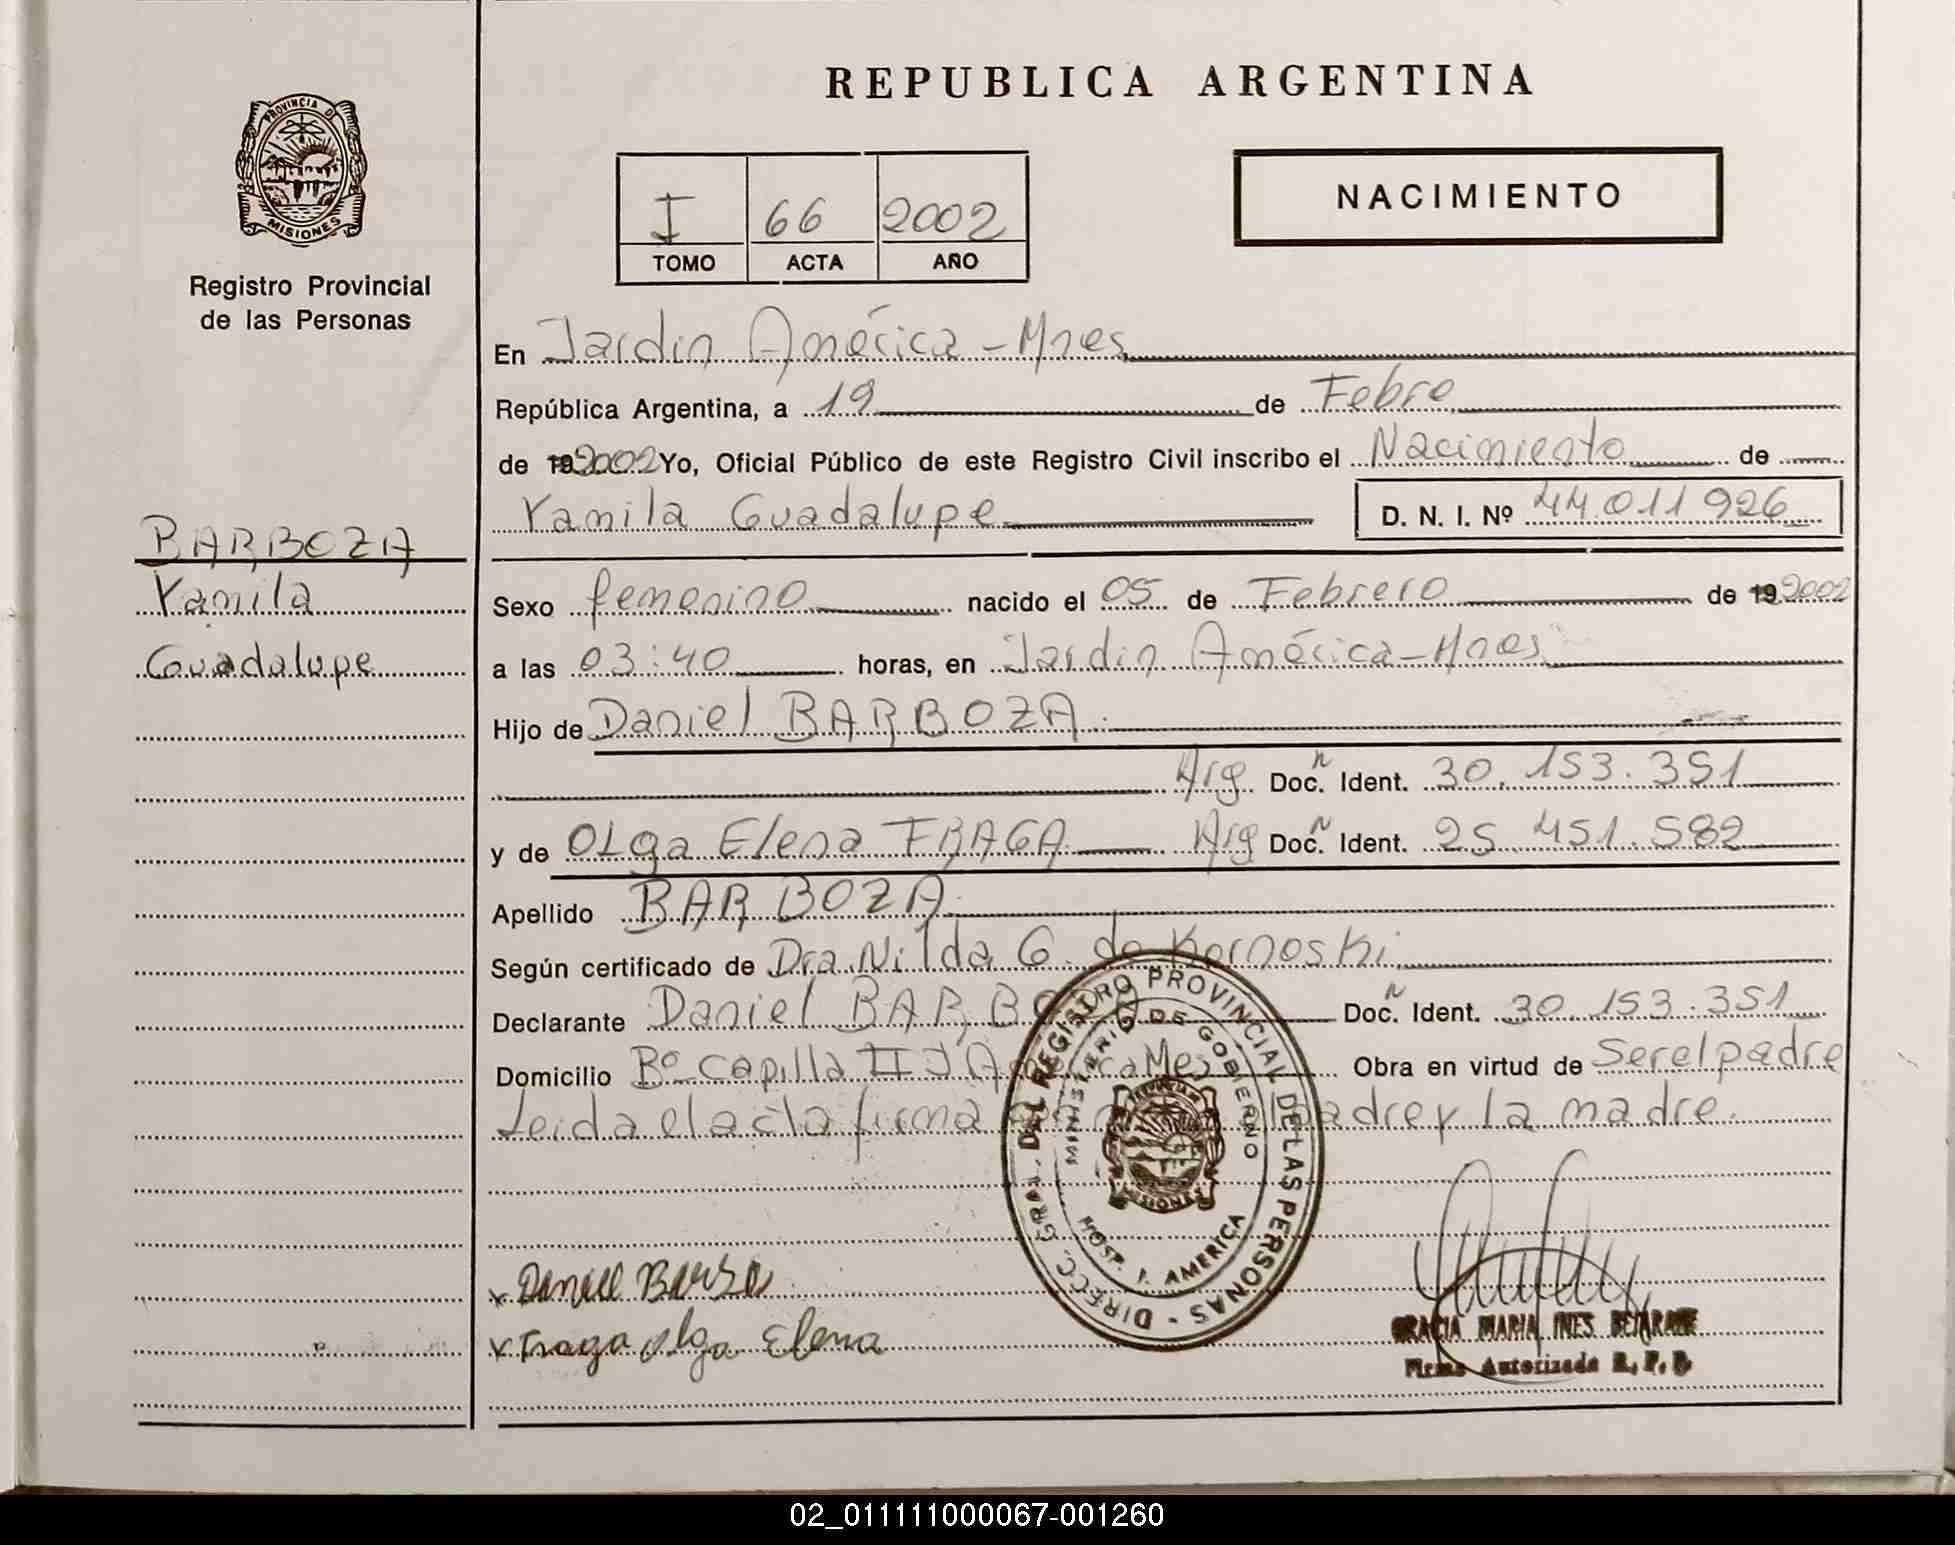 REPUBLICA ARGENTINA
PROVINCIA DE
MISIONES
Registro Provincial
de las Personas
NACIMIENTO
I 66 2002
TOMO ACTA AÑO
En Jardin América - Mnes
República Argentina, a 19 de Febre
de 19 2002 Yo, Oficial Público de este Registro Civil inscribo el Nacimiento de
Yamila Guadalupe D. N. I. Nº 44.011.926
BARBOZA
Yamila
Guadalupe
Sexo femenino nacido el 05 de Febrero de 19 2002
a las 03:40 horas, en Jardin América - Mnes
Hijo de Daniel BARBOZA
Arg Doc. n Ident. 30.153.351
y de OLga Elena FRAGA Arg Doc. n Ident. 25.451.582
Apellido BARBOZA
Según certificado de Dra. Nilda G. de Kornoski
Declarante Daniel BARBOZA Doc. n Ident. 30.153.351
Domicilio Bº Capilla II J América Mes Obra en virtud de Ser el padre
Leida el acta firma padre y la madre.
DIRECC. GRAL. DEL REGISTRO PROVINCIAL DE LAS PERSONAS
MINISTERIO DE GOBIERNO
PROVINCIA DE
MISIONES
HOSP. J. AMERICA
x Daniel Barboza
x Fraga olga Elena
GRACIA MARIA INES
Firma Autorizada R. P. P.
02_011111000067-001260